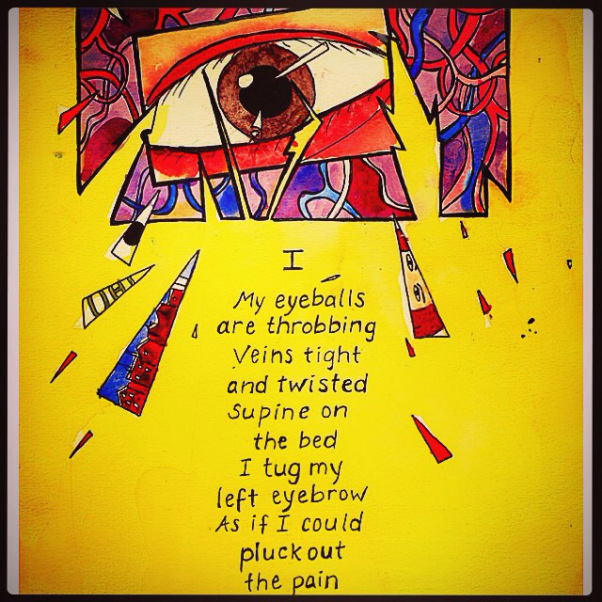 I
My eyeballs
are throbbing
Veins tight
and twisted
Supine on
the bed
I tug my
left eyebrow
As if I could
pluck out
the pain